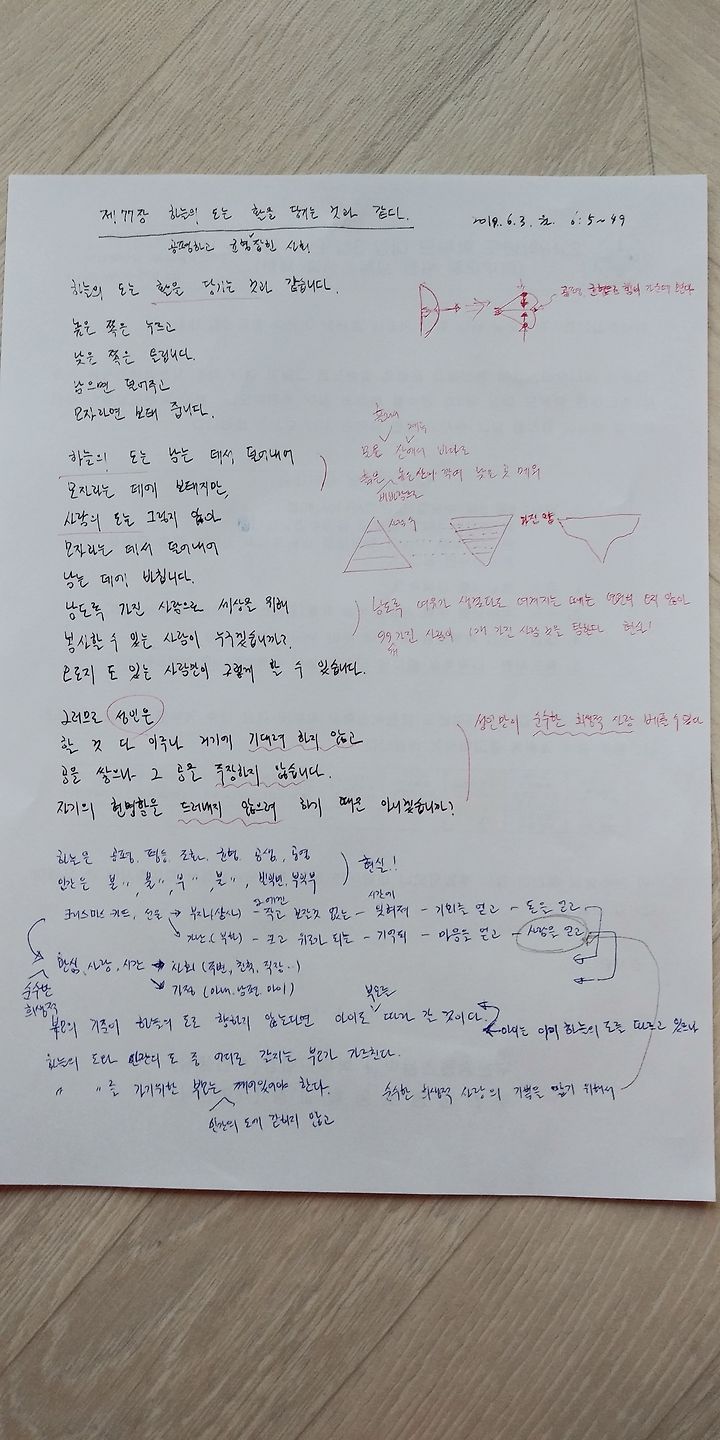 제77장 하늘의 도는 활을 당기는 것과 같다.
2019.6.3.월. 6:5~49
공평하고 균형잡힌 사회
하늘의 도는 활을 당기는 것과 같습니다.
공평, 균형으로 힘이
높은 쪽은 누르고
낮은 쪽은 올립니다.
남으면 덜어주고
모자라면 보태 줍니다.
하늘의 도는 남는 데서 덜어내어
모자라는 데에 보태지만,
사람의 도는 그렇지 않아
모자라는 데서 덜어내어
남는 데에 바칩니다.
남도록 가진 사람으로 세상을 위해
봉사할 수 있는 사람이 누구겠습니까?
오로지 도 있는 사람만이 그렇게 할 수 있습니다.
물은 산에서 바다로
흙은 높은 산이 깎여 낮은 곳 메워
비바람으로
사람 수
가진 양
남도록 여유가 생겼다고 여겨지는 때는 않아
99 가진 사람이 1개 가진 사람 것을 탐한다 현실!
그러므로 성인은
할 것 다 이루나 거기에 기대려 하지 않고
공을 쌓으나 그 공을 주장하지 않습니다.
자기의 현명함을 드러내지 않으려 하기 때문 아니겠습니까?
성인만이 순수한 희생적 사랑 베풀 수 있다
하늘은 공평, 평등, 조화, 균형, 공생, 공영
인간은 불〃, 불〃, 부〃, 불〃, 빈익빈, 부익부
현실!!
크리스마스 카드, 선물 → 부자(살사) - 작고 보잘것 없는 - 잊혀져 - 기회를 얻고 - 돈을 얻고
시간에
가난(북한) - 크고 위로가 되는 - 기억돼 - 마음을 얻고 - 사람을 얻고
관심, 사랑, 시간 → 사회(주변, 친척, 직장..)
가정(아내, 남편, 아이)
순수한
희생적
부모의 기준이 하늘의 도로 향하지 않는다면 아이도 부모를 따라 갈 것이다.
아이는 이미 하늘의 도를 따르고 있으나
하늘의 도와 인간의 도 중 어디로 갈지는 부모가 가르친다.
〃 〃를 가기위한 부모는 깨어있어야 한다.
인간의 도에 갇히지 않고
순수한 희생적 사랑의 기쁨을 알기 위해서